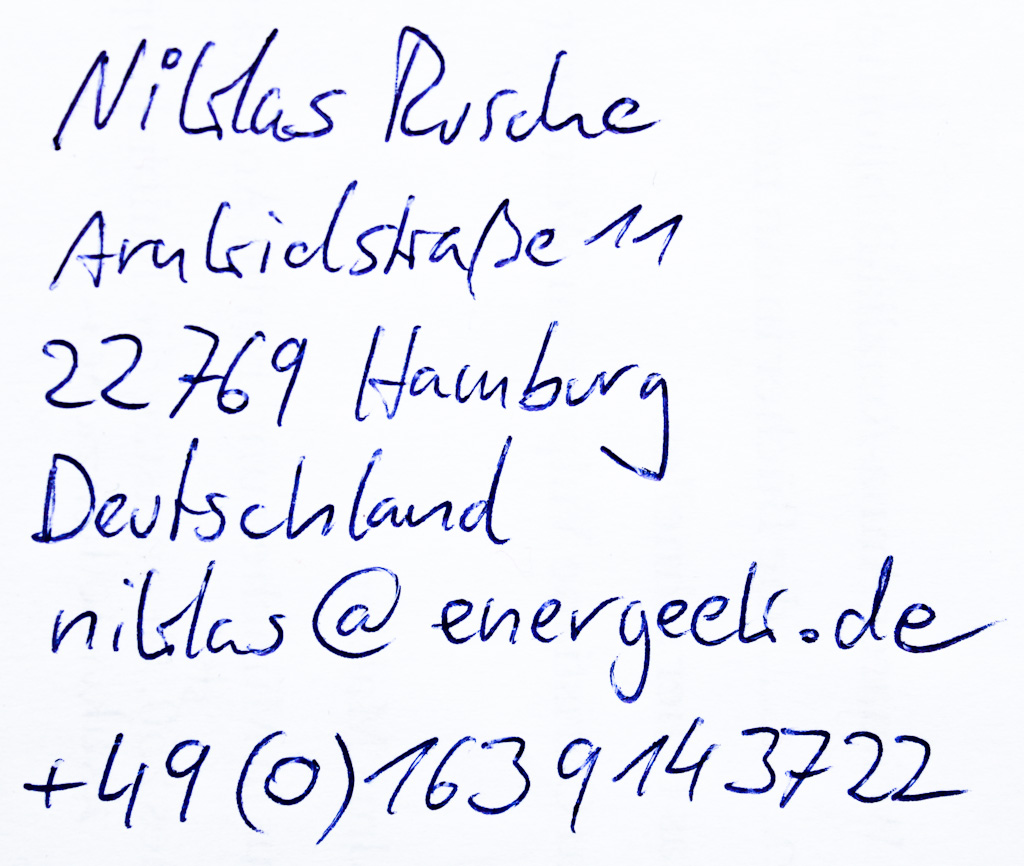 Niklas Rusche
Arnkielstraße 11
22769 Hamburg
Deutschland
niklas@energeek.de
+49(0)1639143722